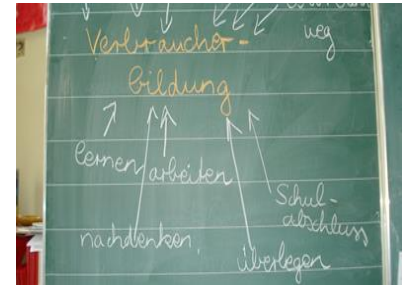 Verbraucher-
weg
bildung
lernen
arbeiten
Schul-
abschluss
nachdenken
überlegen